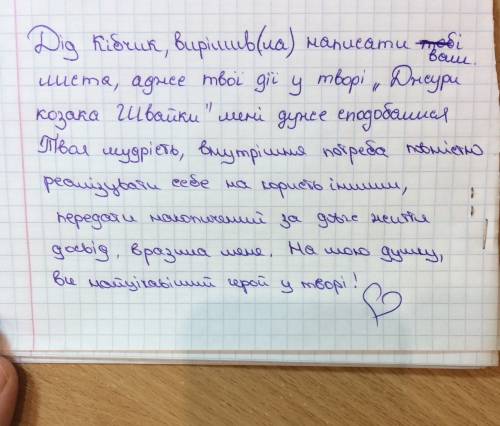 Дід Кібчик, вирішив(ла) написати тобі вам
листа, адже твої дії у творі „Джури
козака Швайки" мені дуже сподобалися
Твоя мудрість, внутрішня потреба повністю
реалізувати себе на користь іншим,
передати накопичений за довге життя
досвід, вразила мене. На мою думку,
ви найцікавіший герой у творі!